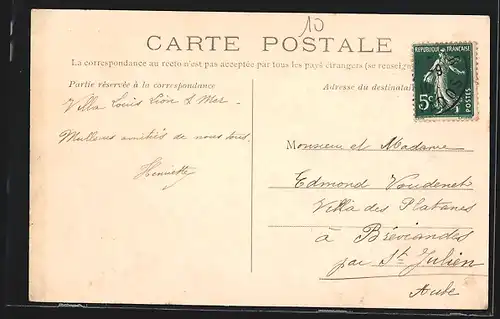 10
CARTE POSTALE
La correspondance au recto n'est pas acceptée par tous les pays étrangers (se renseign
Partie réservée à la correspondance
Adresse du destinatai
REPUBLIQUE FRANÇAISE
5c
POSTES
Villa Louis Lion s Mer
Meilleures amitiés de nous tous.
Henriette
Monsieur et Madame
Edmond Vaudenet
Villa des Platanes
à Bréviandes
par St Julien
Aube